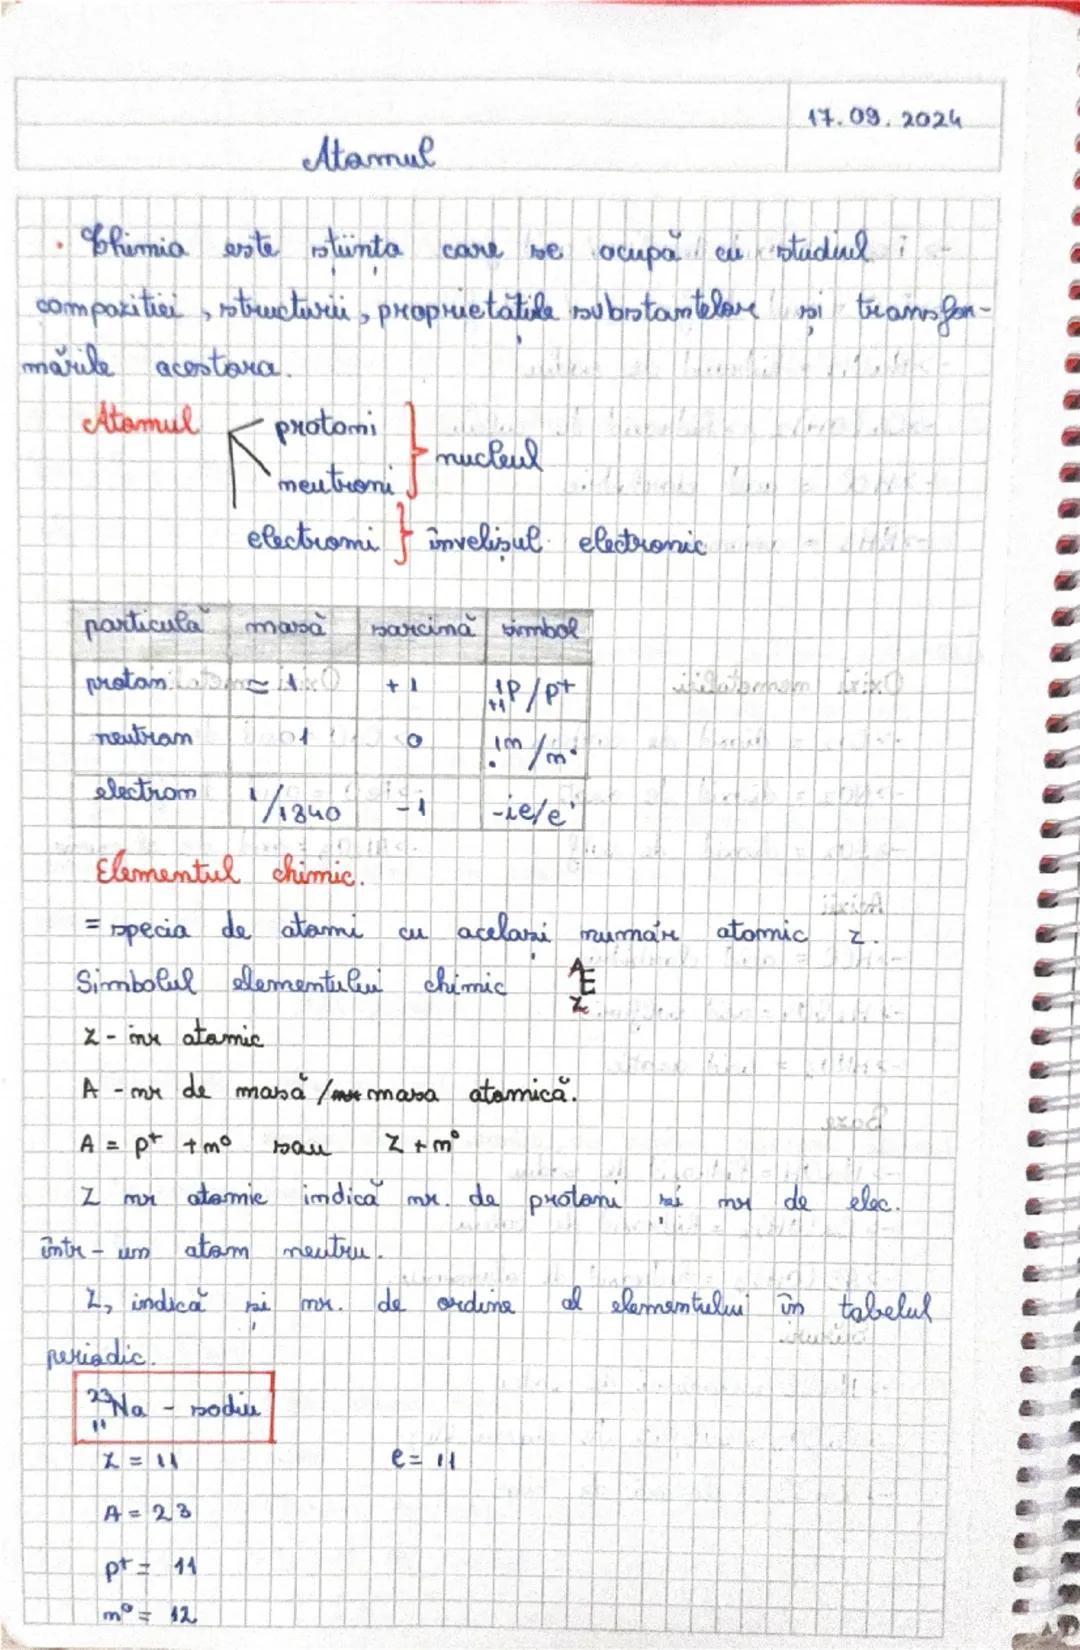 17.09.2024
Atomul
• Chimia este știința care se ocupă cu studiul
compoziției, structurii, proprietățile substanțelor și transfor-
mările acestora.
Atomul
protoni
neutroni
nucleul
electroni
învelișul electronic
particulă masă sarcină simbol
proton ≃ 1 +1 ¹₊₁p/p⁺
neutron 1 0 ¹₀n/n⁰
electron 1/1840 -1 -1e/e⁻
Elementul chimic.
= specia de atomi cu același număr atomic z.
Simbolul elementului chimic ᴬE z
Z - nr atomic
A - nr de masă / masa atomică.
A = p⁺ + n⁰ sau Z + n⁰
Z nr atomic indică nr. de protoni și nr de elec.
într-un atom neutru.
Z, indică și nr. de ordine al elementului în tabelul
periodic.
²³₁₁Na - sodiu
Z = 11 e = 11
A = 23
p⁺ = 11
n⁰ = 12